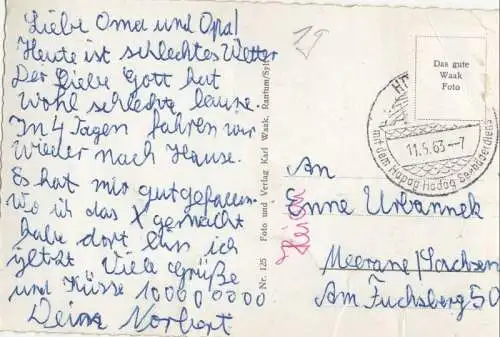 Liebe Oma und Opa!
Heute ist schlechtes Wetter
Der Liebe Gott hat
wohl schlechte laune.
In 4 Tagen fahren wir
wieder nach Hause.
Es hat mir gut gefallen.
Wo ich das X gemacht
habe dort bin ich
jetzt Viele Grüße
und Küsse 100000000
Deine Norbert
Nr. 125 Foto und Verlag Karl Waak, Rantum/Sylt
Das gute
Waak
Foto
mit dem Hapag-Hadag-Seebäderdienst
11.5.63-7
An
Enne Urbannek
Meerane/Sachsen
Am Fuchsberg 50